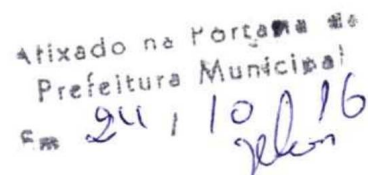 Afixado na Portaria da
Prefeitura Municipal
Em 24 / 10 / 16